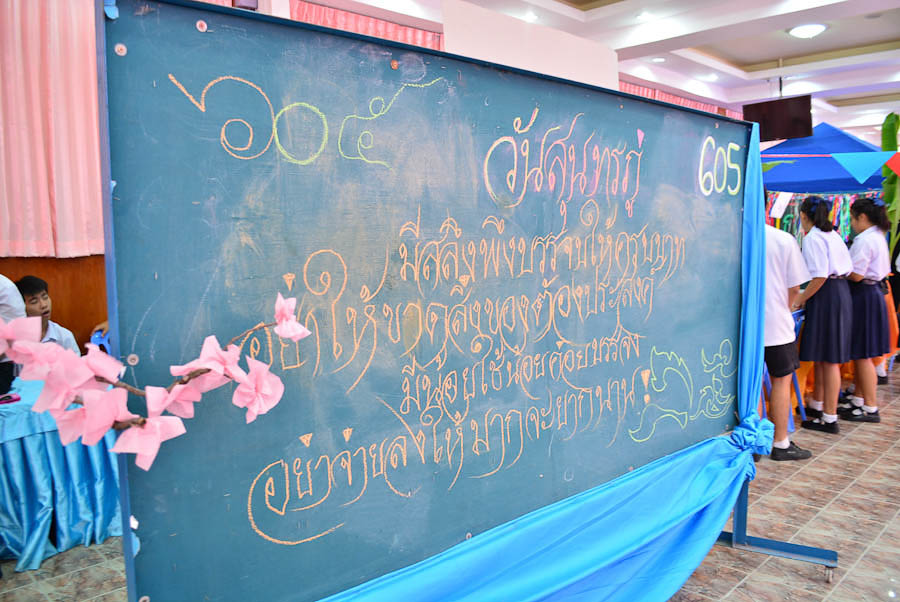 ๖๐๕
วันสุนทรภู่
605
มีสลึงพึงบรรจบให้ครบบาท
อย่าให้ขาดสิ่งของต้องประสงค์
มีน้อยใช้น้อยค่อยบรรจง
อย่าจ่ายลงให้มากจะยากนาน !